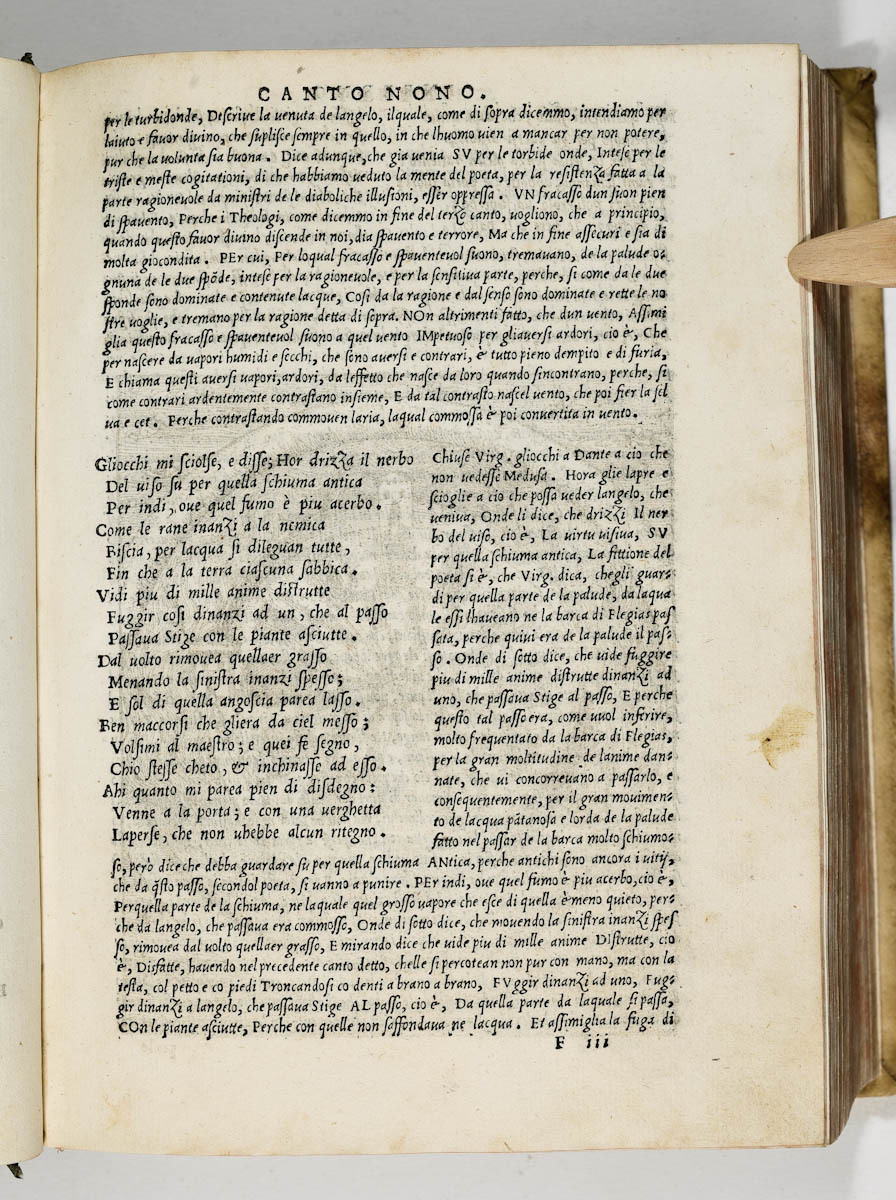 CANTO NONO.
per le turbidonde, Descrive la venuta de langelo, ilquale, come di sopra dicemmo, intendiamo per
laiuto e favor divino, che suplisce sempre in quello, in che lhuomo vien a mancar per non potere,
pur che la volunta sia buona. Dice adunque, che gia venia SV per le torbide onde, Intese per le
triste e meste cogitationi, di che habbiamo veduto la mente del poeta, per la resistenza fatta a la
parte ragionevole da ministri de le diaboliche illusioni, esser oppressa. VN fracasso dun suon pien
di spavento, Perche i Theologi, come dicemmo in fine del terzo canto, vogliono, che a principio,
quando questo favor divino discende in noi, dia spavento e terrore, Ma che in fine assecuri e sia di
molta giocondita. PEr cui, Per loqual fracasso e spauenteuol suono, tremauano, de la palude o-
gnuna de le due spõde, intese per la ragioneuole, e per la sensitiua parte, perche, si come da le due
sponde sono dominate e contenute lacque, Cosi da la ragione e dal senso sono dominate e rette le no
stre uoglie, e tremano per la ragione detta di sopra. NOn altrimenti fatto, che dun uento, Assimi
glia questo fracasso e spauenteuol suono a quel uento IMpetuoso per gliauersi ardori, cio è, Che
per nascere da uapori humidi e secchi, che sono auersi e contrari, è tutto pieno dempito e di furia,
E chiama questi auersi uapori, ardori, da leffetto che nasce da loro quando sincontrano, perche, si
come contrari ardentemente contrastano insieme, E da tal contrasto nascel uento, che poi fier la sel
ua e cet. Perche contrastando commouen laria, laqual commossa è poi conuertita in uento.
Gliocchi mi sciolse, e disse; Hor drizza il nerbo
Del uiso su per quella schiuma antica
Per indi, oue quel fumo è piu acerbo.
Come le rane inanzi a la nemica
Biscia, per lacqua si dileguan tutte,
Fin che a la terra ciascuna sabbica.
Vidi piu di mille anime distrutte
Fuggir cosi dinanzi ad un, che al passo
Passaua Stige con le piante asciutte.
Dal uolto rimouea quellaer grasso
Menando la sinistra inanzi spesso;
E sol di quella angoscia parea lasso.
Ben maccorsi che gliera da ciel messo;
Volsimi al maestro; e quei fe segno,
Chio stesse cheto, & inchinasse ad esso.
Ahi quanto mi parea pien di disdegno:
Venne a la porta; e con una uerghetta
Laperse, che non uhebbe alcun ritegno.
Chiuse Virg. gliocchi a Dante a cio che
non uedesse Medusa. Hora glie lapre e
scioglie a cio che possa ueder langelo, che
ueniua, Onde li dice, che drizzi Il ner
bo del uiso, cio è, La uirtu uisiua, SV
per quella schiuma antica, La fittione del
poeta si è, che Virg. dica, chegli guar-
di per quella parte de la palude, da laqua
le essi lhaueano ne la barca di Flegias pas
sata, perche quiui era de la palude il pas-
so. Onde di sotto dice, che uide fuggire
piu di mille anime distrutte dinanzi ad
uno, che passaua Stige al passo, E perche
questo tal passo era, come uuol inferire,
molto frequentato da la barca di Flegias,
per la gran moltitudine de lanime dan-
nate, che ui concorreuano a passarlo, e
consequentemente, per il gran mouimen-
to de lacqua pãtanosa e lorda de la palude
fatto nel passar de la barca molto schiumo-
so, però dice che debba guardare su per quella schiuma ANtica, perche antichi sono ancora i uitij,
che da q̃sto passo, secondol poeta, si uanno a punire. PEr indi, oue quel fumo è piu acerbo, cio è,
Perquella parte de la schiuma, ne laquale quel grosso uapore che esce di quella è meno quieto, per-
che da langelo, che passaua era commosso, Onde di sotto dice, che mouendo la sinistra inanzi spes
so, rimouea dal uolto quellaer grasso, E mirando dice che uide piu di mille anime Distrutte, cio
è, Disfatte, hauendo nel precedente canto detto, chelle si percotean non pur con mano, ma con la
testa, col petto e co piedi Troncandosi co denti a brano a brano, FVggir dinanzi ad uno, Fug-
gir dinanzi a langelo, che passaua Stige AL passo, cio è, Da quella parte da laquale si passa,
COn le piante asciutte, Perche con quelle non saffondaua ne lacqua. Et assimiglia la fuga di
F iii